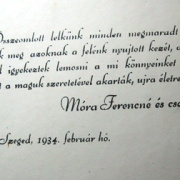 sszeomlott lelkünk minden megmaradt
k meg azoknak a felénk nyujtott kezét, a
l igyekeztek lemosni a mi könnyeinket
t a maguk szeretetével akarták, ujra életre
Móra Ferencné és csa
Szeged, 1934. február hó.